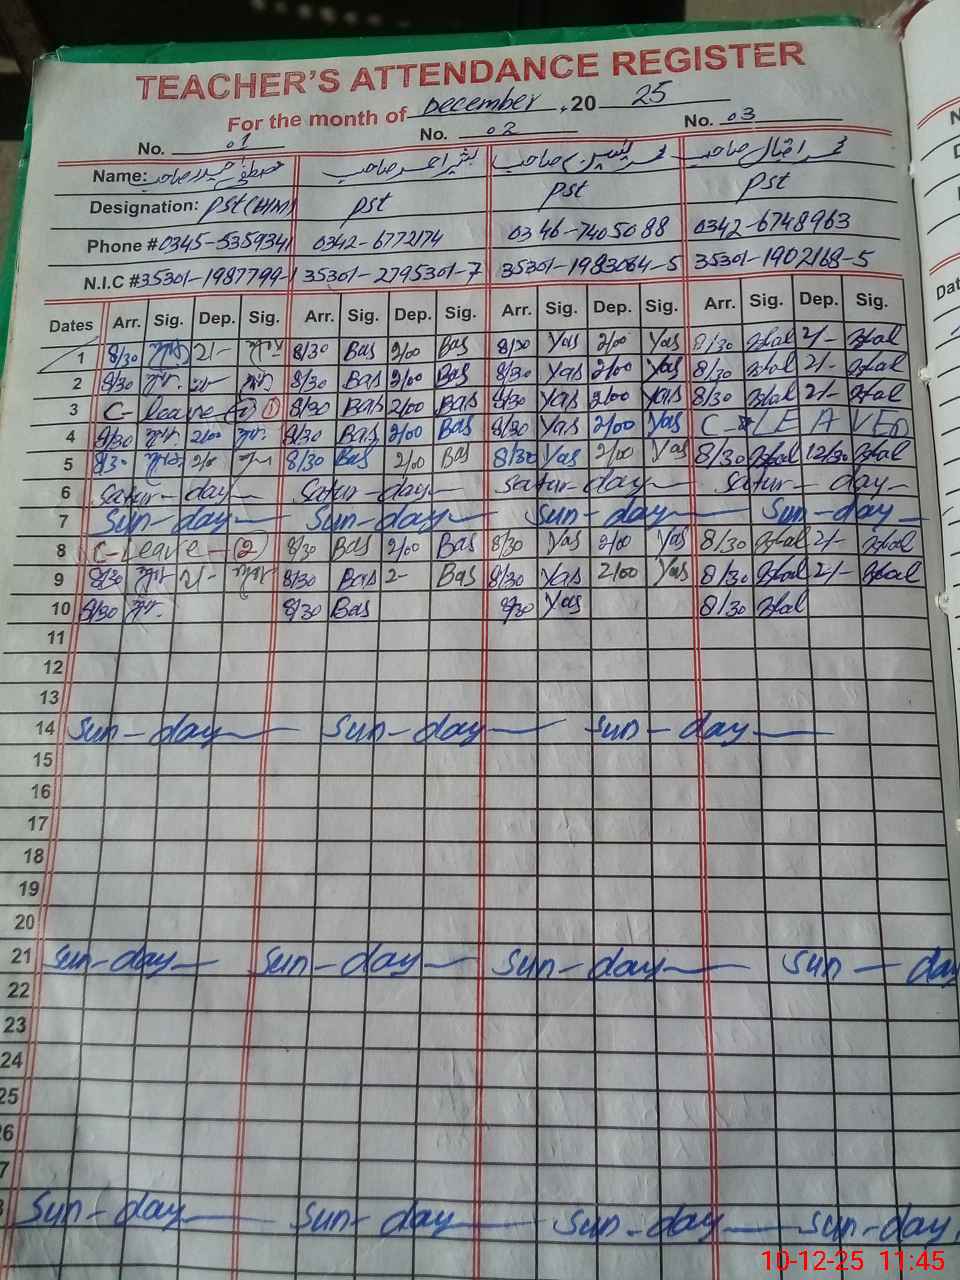 TEACHER'S ATTENDANCE REGISTER
For the month of December, 20 25
No. 01 No. 02 No. 03
Name: صاحب بشیر احمد صاحب محمد یٰسین صاحب محمد افضال صاحب
Designation: PST(HM) PST PST PST
Phone # 0345-5359341 0342-6772174 0346-7405088 0342-6748963
N.I.C # 35301-1987799-1 35301-2795301-7 35301-1983064-5 35301-1902168-5
Dates Arr. Sig. Dep. Sig. Arr. Sig. Dep. Sig. Arr. Sig. Dep. Sig. Arr. Sig. Dep. Sig.
1 8/30 2/- 8/30 Bas 2/00 Bas 8/30 Yas 2/00 Yas 8/30 2/-
2 8/30 8/30 Bas 2/00 Bas 8/30 Yas 2/00 Yas 8/30 2/-
3 C-leave ① 8/30 Bas 2/00 Bas 8/30 Yas 2/00 Yas 8/30 2/-
4 8/30 2/00 8/30 Bas 2/00 Bas 8/30 Yas 2/00 Yas C-LEAVED
5 8/30 2/0 8/30 Bas 2/00 Bas 8/30 Yas 2/00 Yas 8/30 12/30
6 Satur-day- Satur-day- Satur-day- Satur-day-
7 Sun-day- Sun-day- Sun-day- Sun-day-
8 C-leave-② 8/30 Bas 2/00 Bas 8/30 Yas 2/00 Yas 8/30 2/-
9 8/30 2/- 8/30 Bas 2- Bas 8/30 Yas 2/00 Yas 8/30 2/-
10 8/30 8/30 Bas 8/30 Yas 8/30
11
12
13
14 Sun-day- Sun-day- Sun-day-
15
16
17
18
19
20
21 Sun-day- Sun-day- Sun-day- Sun-day
22
23
24
25
6
7
8 Sun-day- Sun-day- Sun-day- Sun-day
10-12-25 11:45